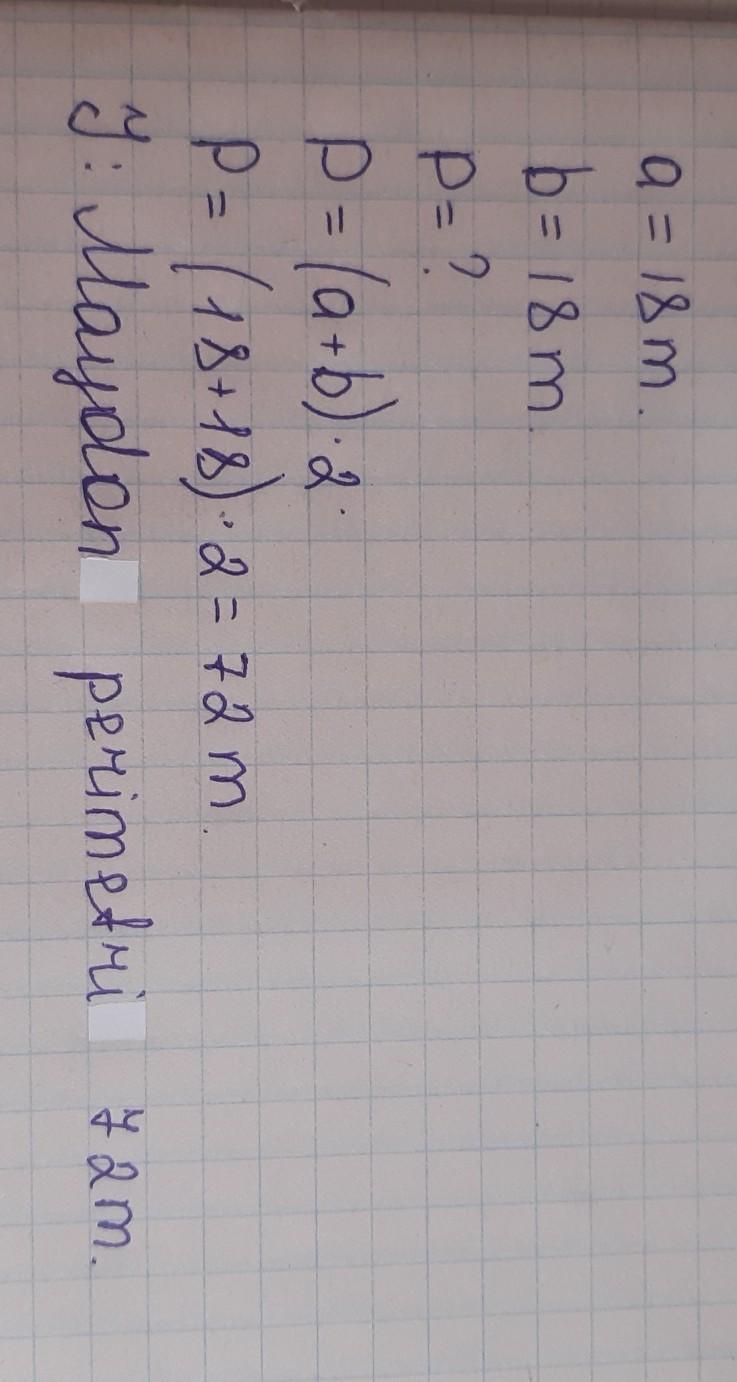 a = 18 m.
b = 18 m.
p = ?
p = (a+b)·2.
p = (18+18)·2 = 72 m.
Y: Maydon perimetri 72 m.